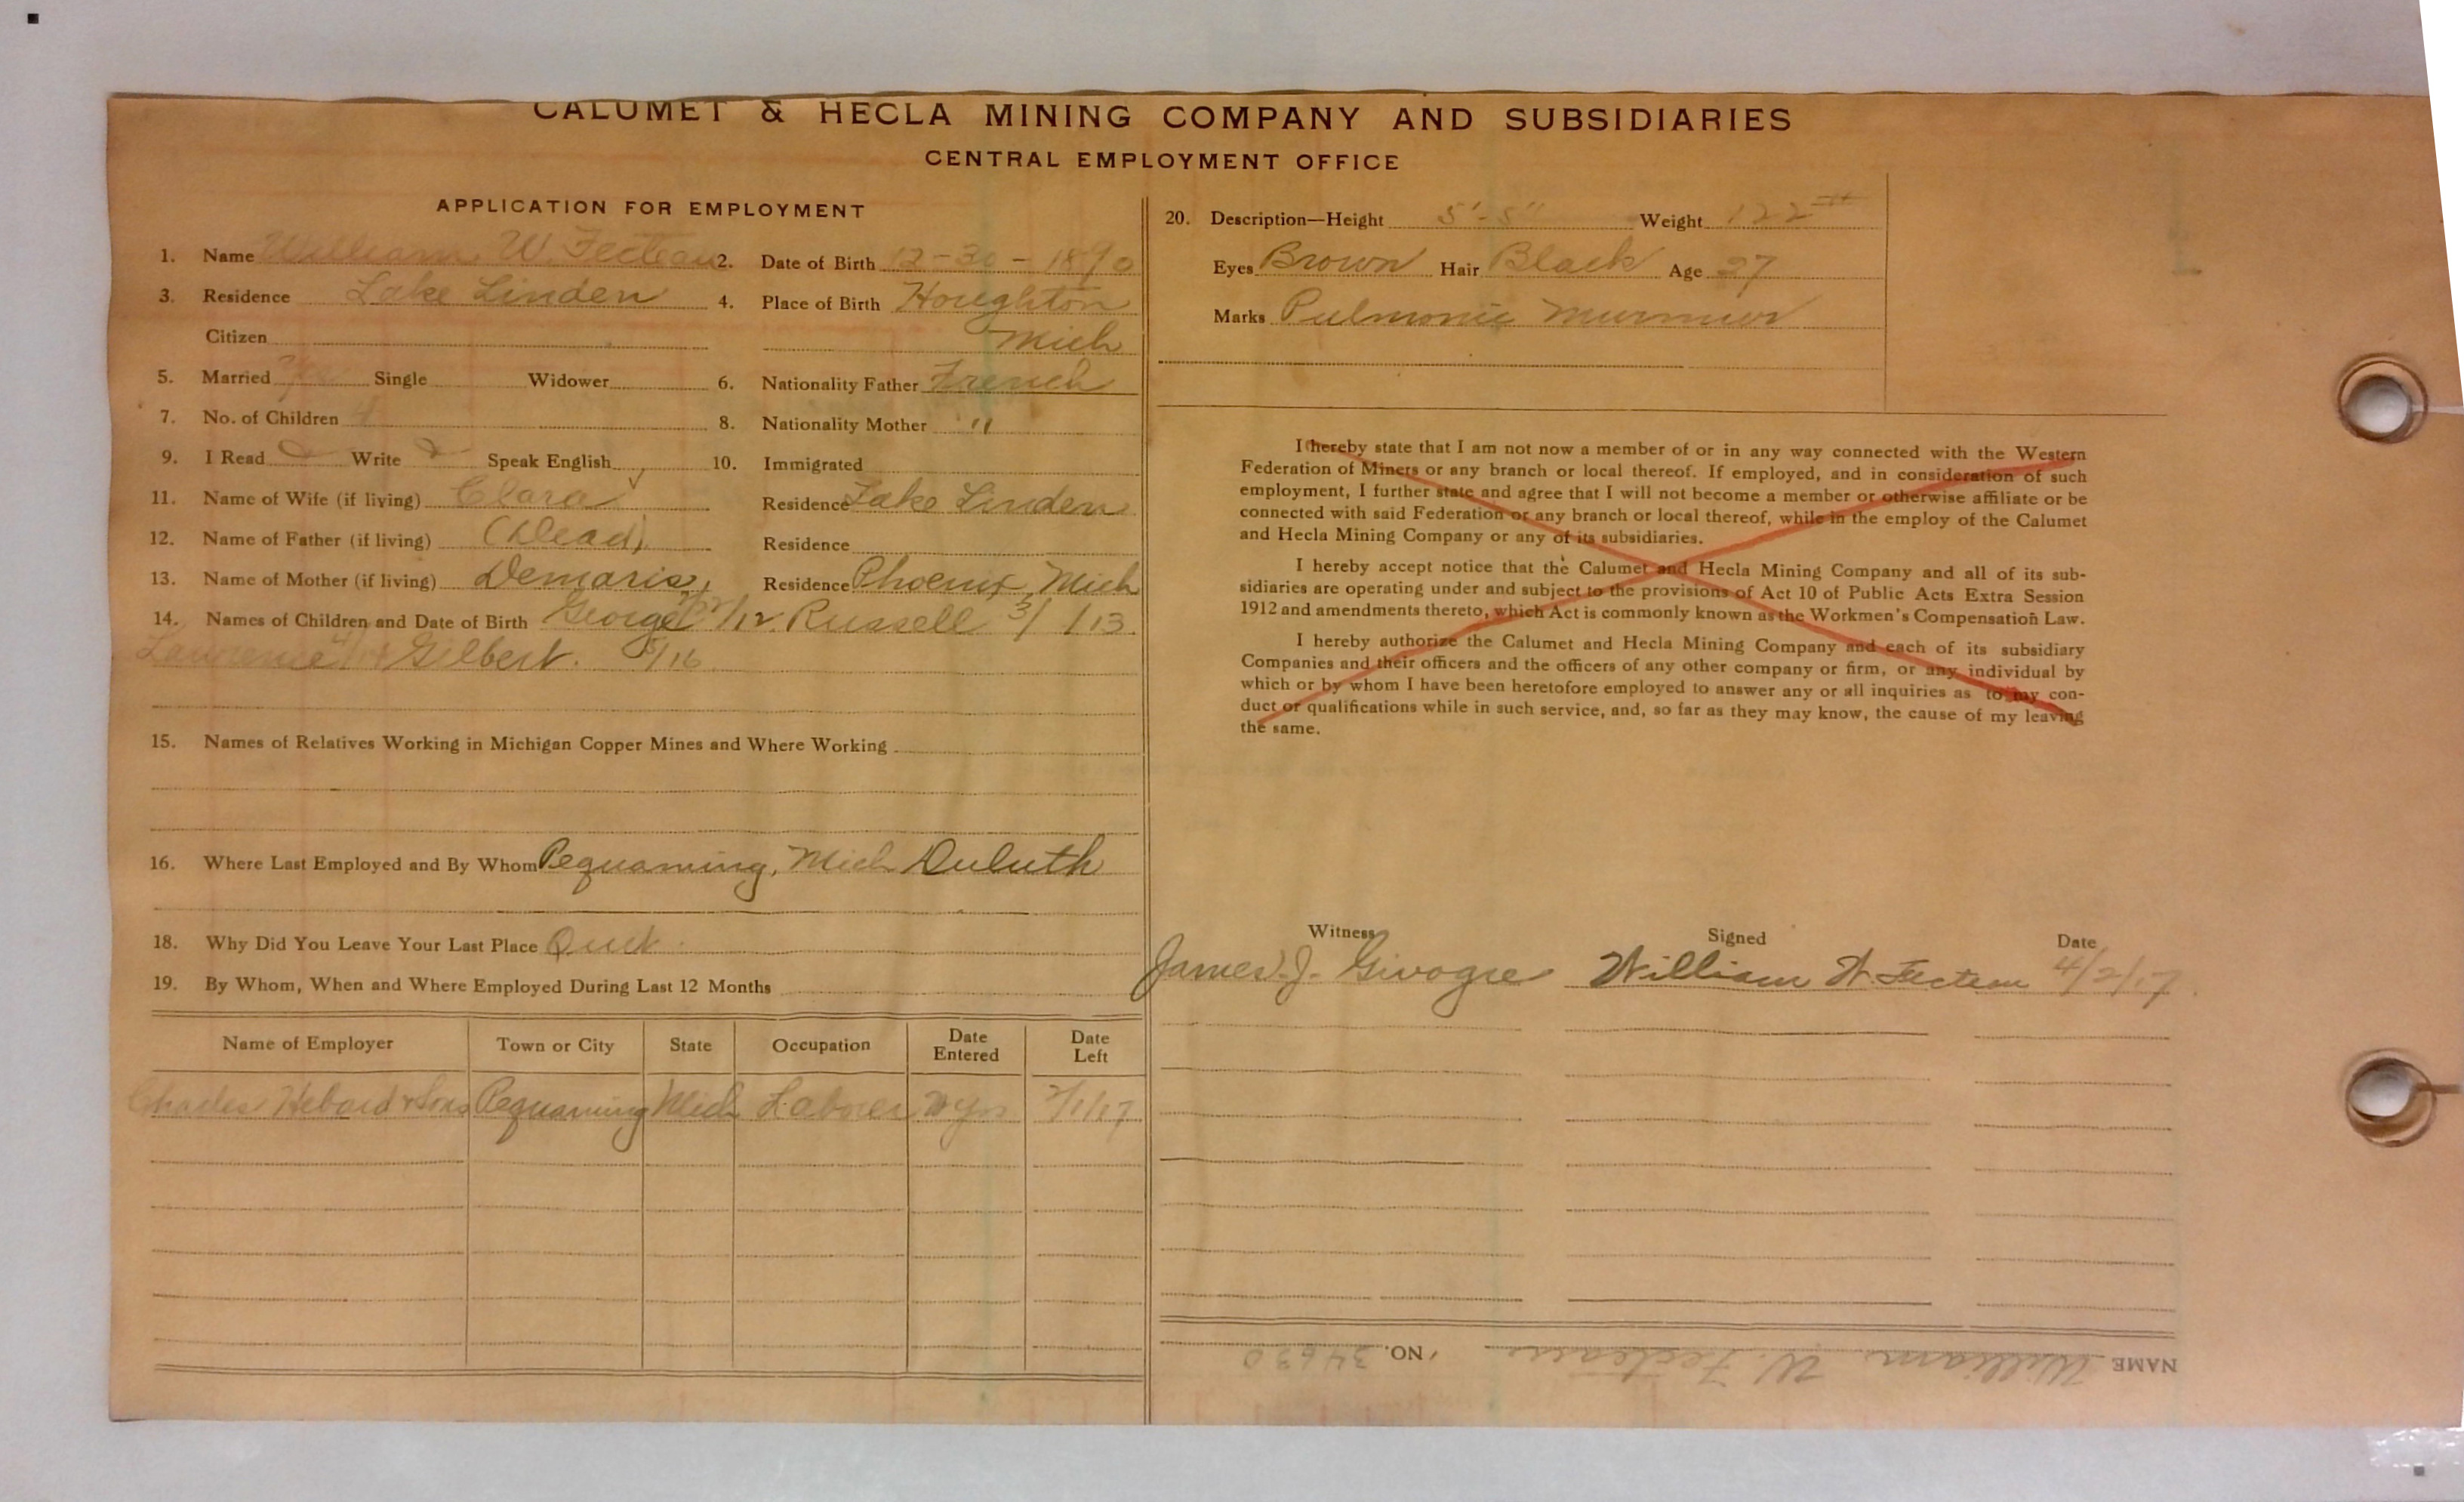 CALUMET & HECLA MINING COMPANY AND SUBSIDIARIES
CENTRAL EMPLOYMENT OFFICE
APPLICATION FOR EMPLOYMENT
1. Name William. W. Fecteau 2. Date of Birth 12-30-1890
3. Residence Lake Linden 4. Place of Birth Houghton
Citizen Mich
5. Married Single Widower 6. Nationality Father French
7. No. of Children 4 8. Nationality Mother "
9. I Read Write Speak English 10. Immigrated
11. Name of Wife (if living) Clara Residence Lake Linden
12. Name of Father (if living) (Dead) Residence
13. Name of Mother (if living) Demaris, Residence Phoenix, Mich
14. Names of Children and Date of Birth George /12. Russell 3/ /13.
Lawrence Gilbert. /16
15. Names of Relatives Working in Michigan Copper Mines and Where Working
16. Where Last Employed and By Whom Pequaming, Mich Duluth
18. Why Did You Leave Your Last Place Quit.
19. By Whom, When and Where Employed During Last 12 Months
Name of Employer Town or City State Occupation Date Entered Date Left
Charles Hebard & Sons Pequaming Mich Laborer yrs /1/17
20. Description—Height 5'-5" Weight 122#
Eyes Brown Hair Black Age 27
Marks Pulmonic Murmur
I hereby state that I am not now a member of or in any way connected with the Western
Federation of Miners or any branch or local thereof. If employed, and in consideration of such
employment, I further state and agree that I will not become a member or otherwise affiliate or be
connected with said Federation or any branch or local thereof, while in the employ of the Calumet
and Hecla Mining Company or any of its subsidiaries.
I hereby accept notice that the Calumet and Hecla Mining Company and all of its sub-
sidiaries are operating under and subject to the provisions of Act 10 of Public Acts Extra Session
1912 and amendments thereto, which Act is commonly known as the Workmen's Compensation Law.
I hereby authorize the Calumet and Hecla Mining Company and each of its subsidiary
Companies and their officers and the officers of any other company or firm, or any individual by
which or by whom I have been heretofore employed to answer any or all inquiries as to my con-
duct or qualifications while in such service, and, so far as they may know, the cause of my leaving
the same.
Witness Signed Date
James J. Givogre William W. Fecteau 4/2/17
NAME William W. Fecteau NO. 34630